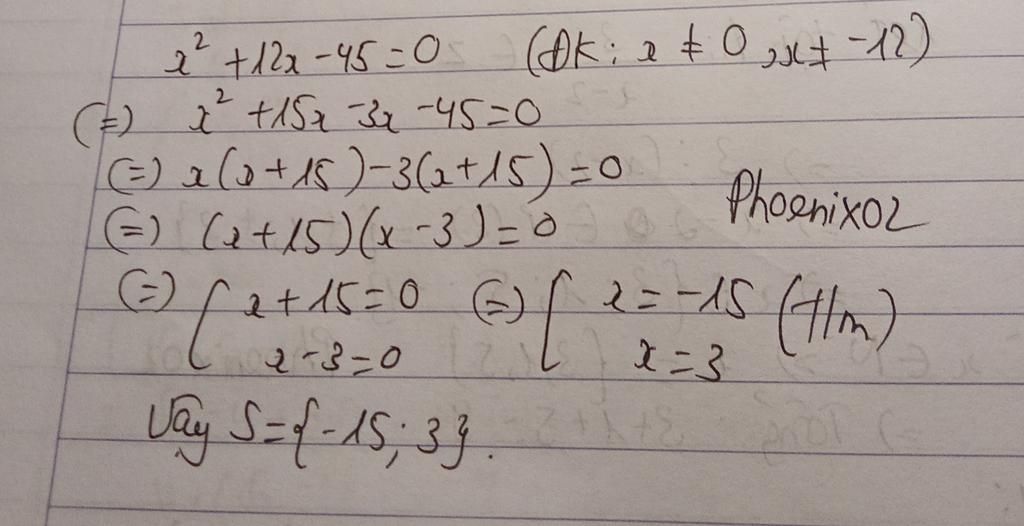 x² + 12x - 45 = 0 (ĐK: x ≠ 0, x ≠ -12)
(=) x² + 15x - 3x - 45 = 0
(=) x(x + 15) - 3(x + 15) = 0
(=) (x + 15)(x - 3) = 0
Phoenix02
(=) [ x + 15 = 0 (=) [ x = -15 (t/m)
x - 3 = 0 x = 3
Vậy S = {-15; 3}.